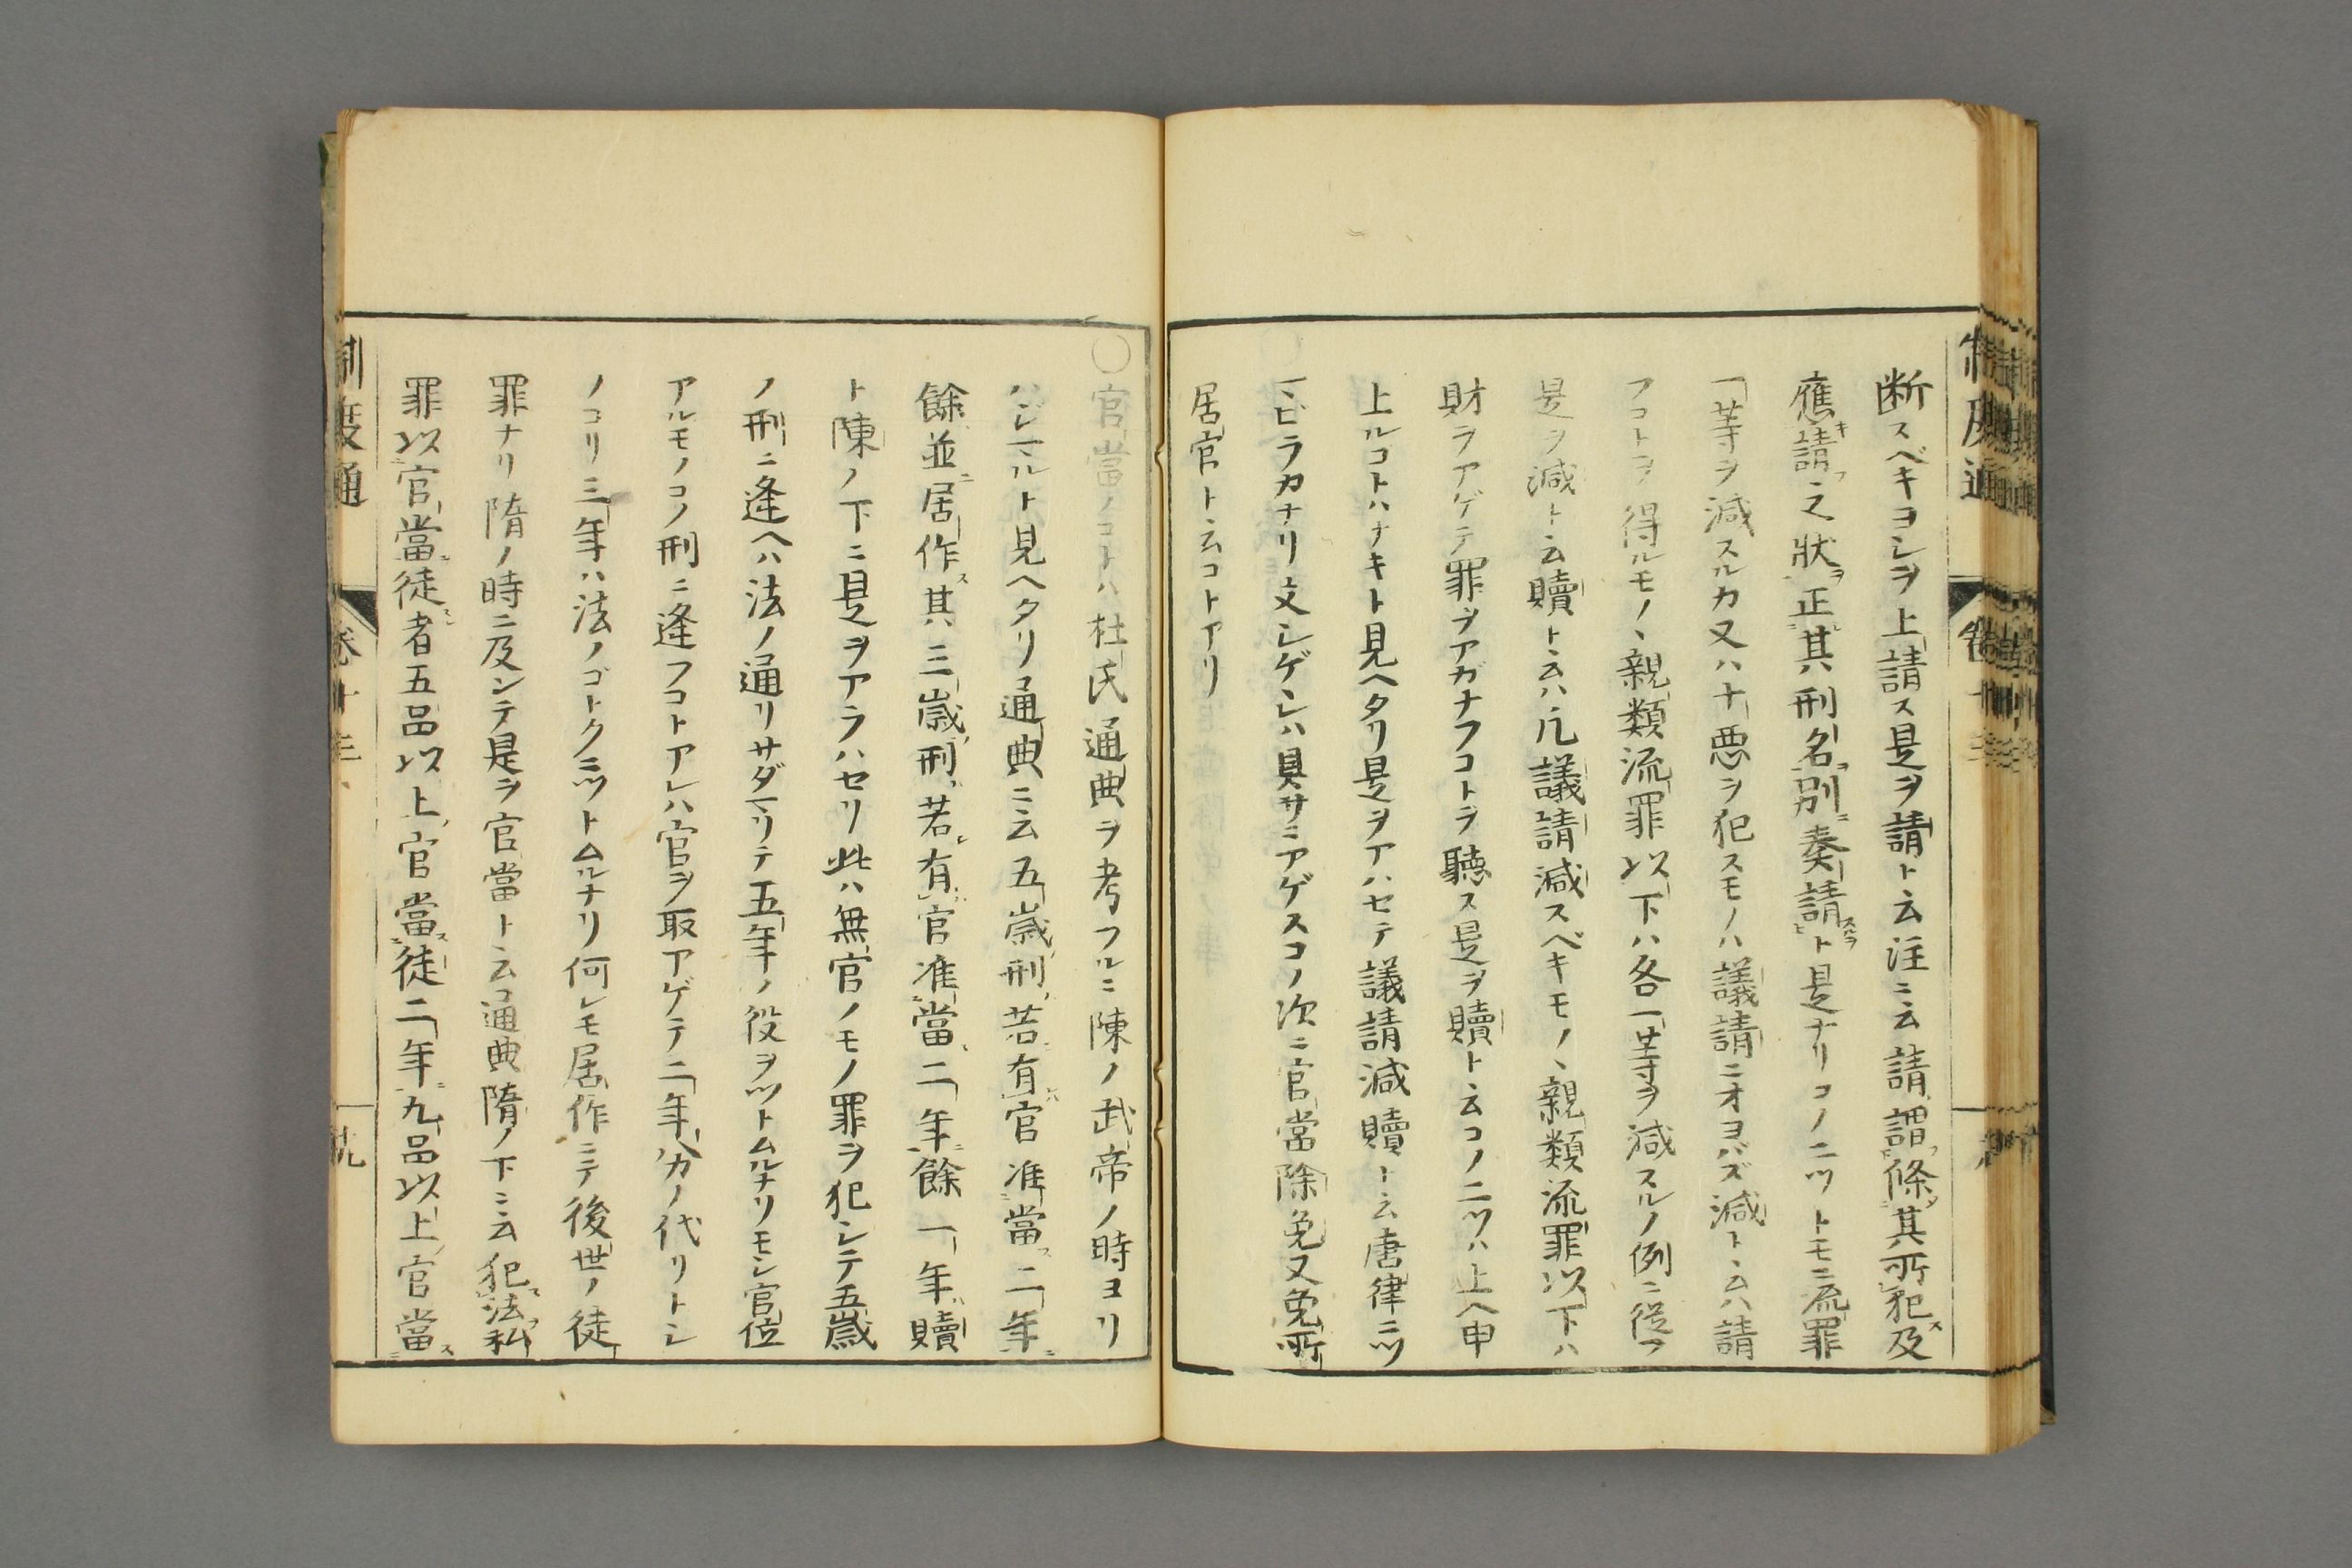 断スベキヨシヲ上請ス是ヲ請ト云注ニ云請謂條其所犯及
應請之狀正其刑名別奏請ト是ナリコノ二ツトモニ流罪
一等ヲ減スルカ又ハ十悪ヲ犯スモノハ議請ニオヨバズ減ト云ハ請
フコトヲ得ルモノヽ親類流罪以下ハ各一等ヲ減スルノ例ニ従フ
是ヲ減ト云贖ト云ハ凡議請減スベキモノヽ親類流罪以下ハ
財ヲアゲテ罪ヲアガナフコトヲ聴ス是ヲ贖ト云コノ二ツハ上ヘ申
上ルコトハナキト見ヘタリ是ヲアハセテ議請減贖ト云唐律ニツ
マビラカナリ文シゲシハ具サニアゲスコノ次ニ官當除免又免所
居官ト云コトアリ
〇官當ノコトハ杜氏通典ヲ考フルニ陳ノ武帝ノ時ヨリ
ハシマルト見ヘタリ通典ニ云五歳刑若有官准當二年
餘並居作其三歳刑若有官准當二年餘一年贖
ト陳ノ下ニ是ヲアラハセリ此ハ無官ノモノ罪ヲ犯シテ五歳
ノ刑ニ逢ヘハ法ノ通リサダマリテ五年ノ役ヲツトムルナリモシ官位
アルモノコノ刑ニ逢フコトアレハ官ヲ取アゲテ二年ハカノ代リトシ
ノコリ三年ハ法ノゴトクニツトムルナリ何レモ居作ニテ後世ノ徒
罪ナリ隋ノ時ニ及ンテ是ヲ官當ト云通典隋ノ下ニ云犯法私
罪以官當徒者五品以上官當徒二年九品以上官當
制度通
巻十三
十九